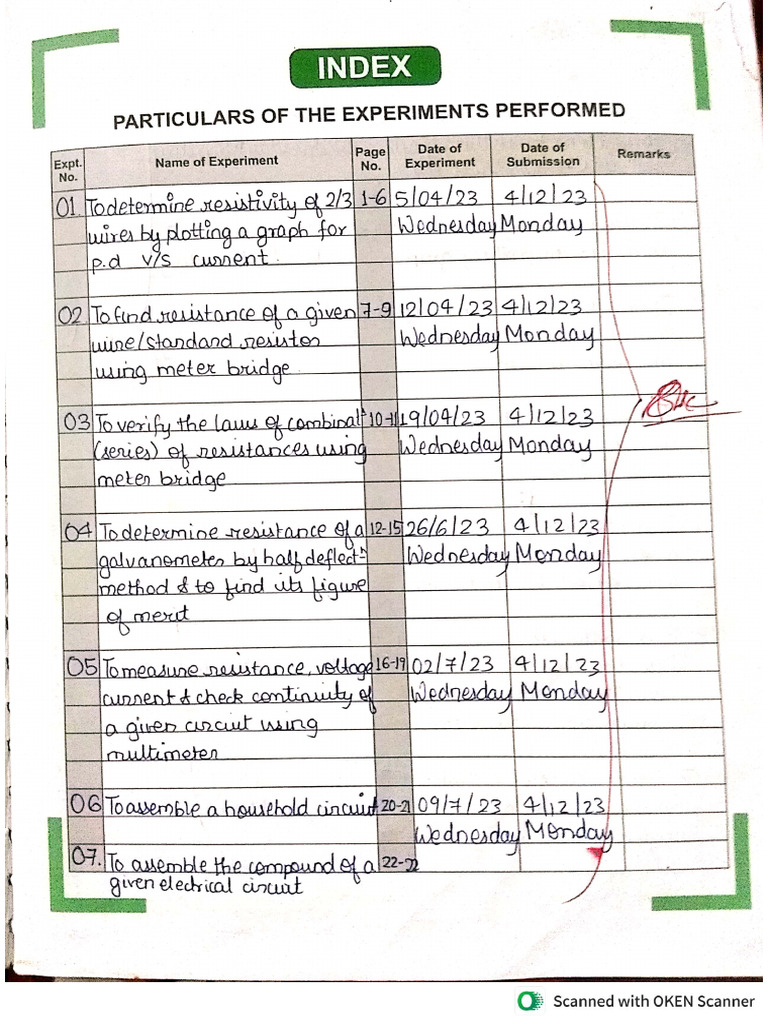 INDEX
PARTICULARS OF THE EXPERIMENTS PERFORMED
Expt. No. Name of Experiment Page No. Date of Experiment Date of Submission Remarks
01. To determine resistivity of 2/3 1-6 5/04/23 4/12/23
wires by plotting a graph for Wednesday Monday
p.d v/s current
02. To find resistance of a given 7-9 12/04/23 4/12/23
wire/standard resistor Wednesday Monday
using meter bridge
03 To verify the laws of combinatⁿ 10-11 19/04/23 4/12/23
(series) of resistances using Wednesday Monday
meter bridge
04 To determine resistance of a 12-15 26/6/23 4/12/23
galvanometer by half deflectⁿ Wednesday Monday
method & to find its figure
of merit
05 To measure resistance, voltage 16-19 02/7/23 4/12/23
current & check continuity of Wednesday Monday
a given circuit using
multimeter
06 To assemble a household circuit 20-21 09/7/23 4/12/23
Wednesday Monday
07. To assemble the compound of a 22-22
given electrical circuit
Scanned with OKEN Scanner